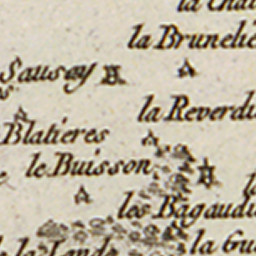 la Brunelie
Sausay
la Reverdi
Blatieres
le Buisson
les Bagaudi
la Lande
la Gu